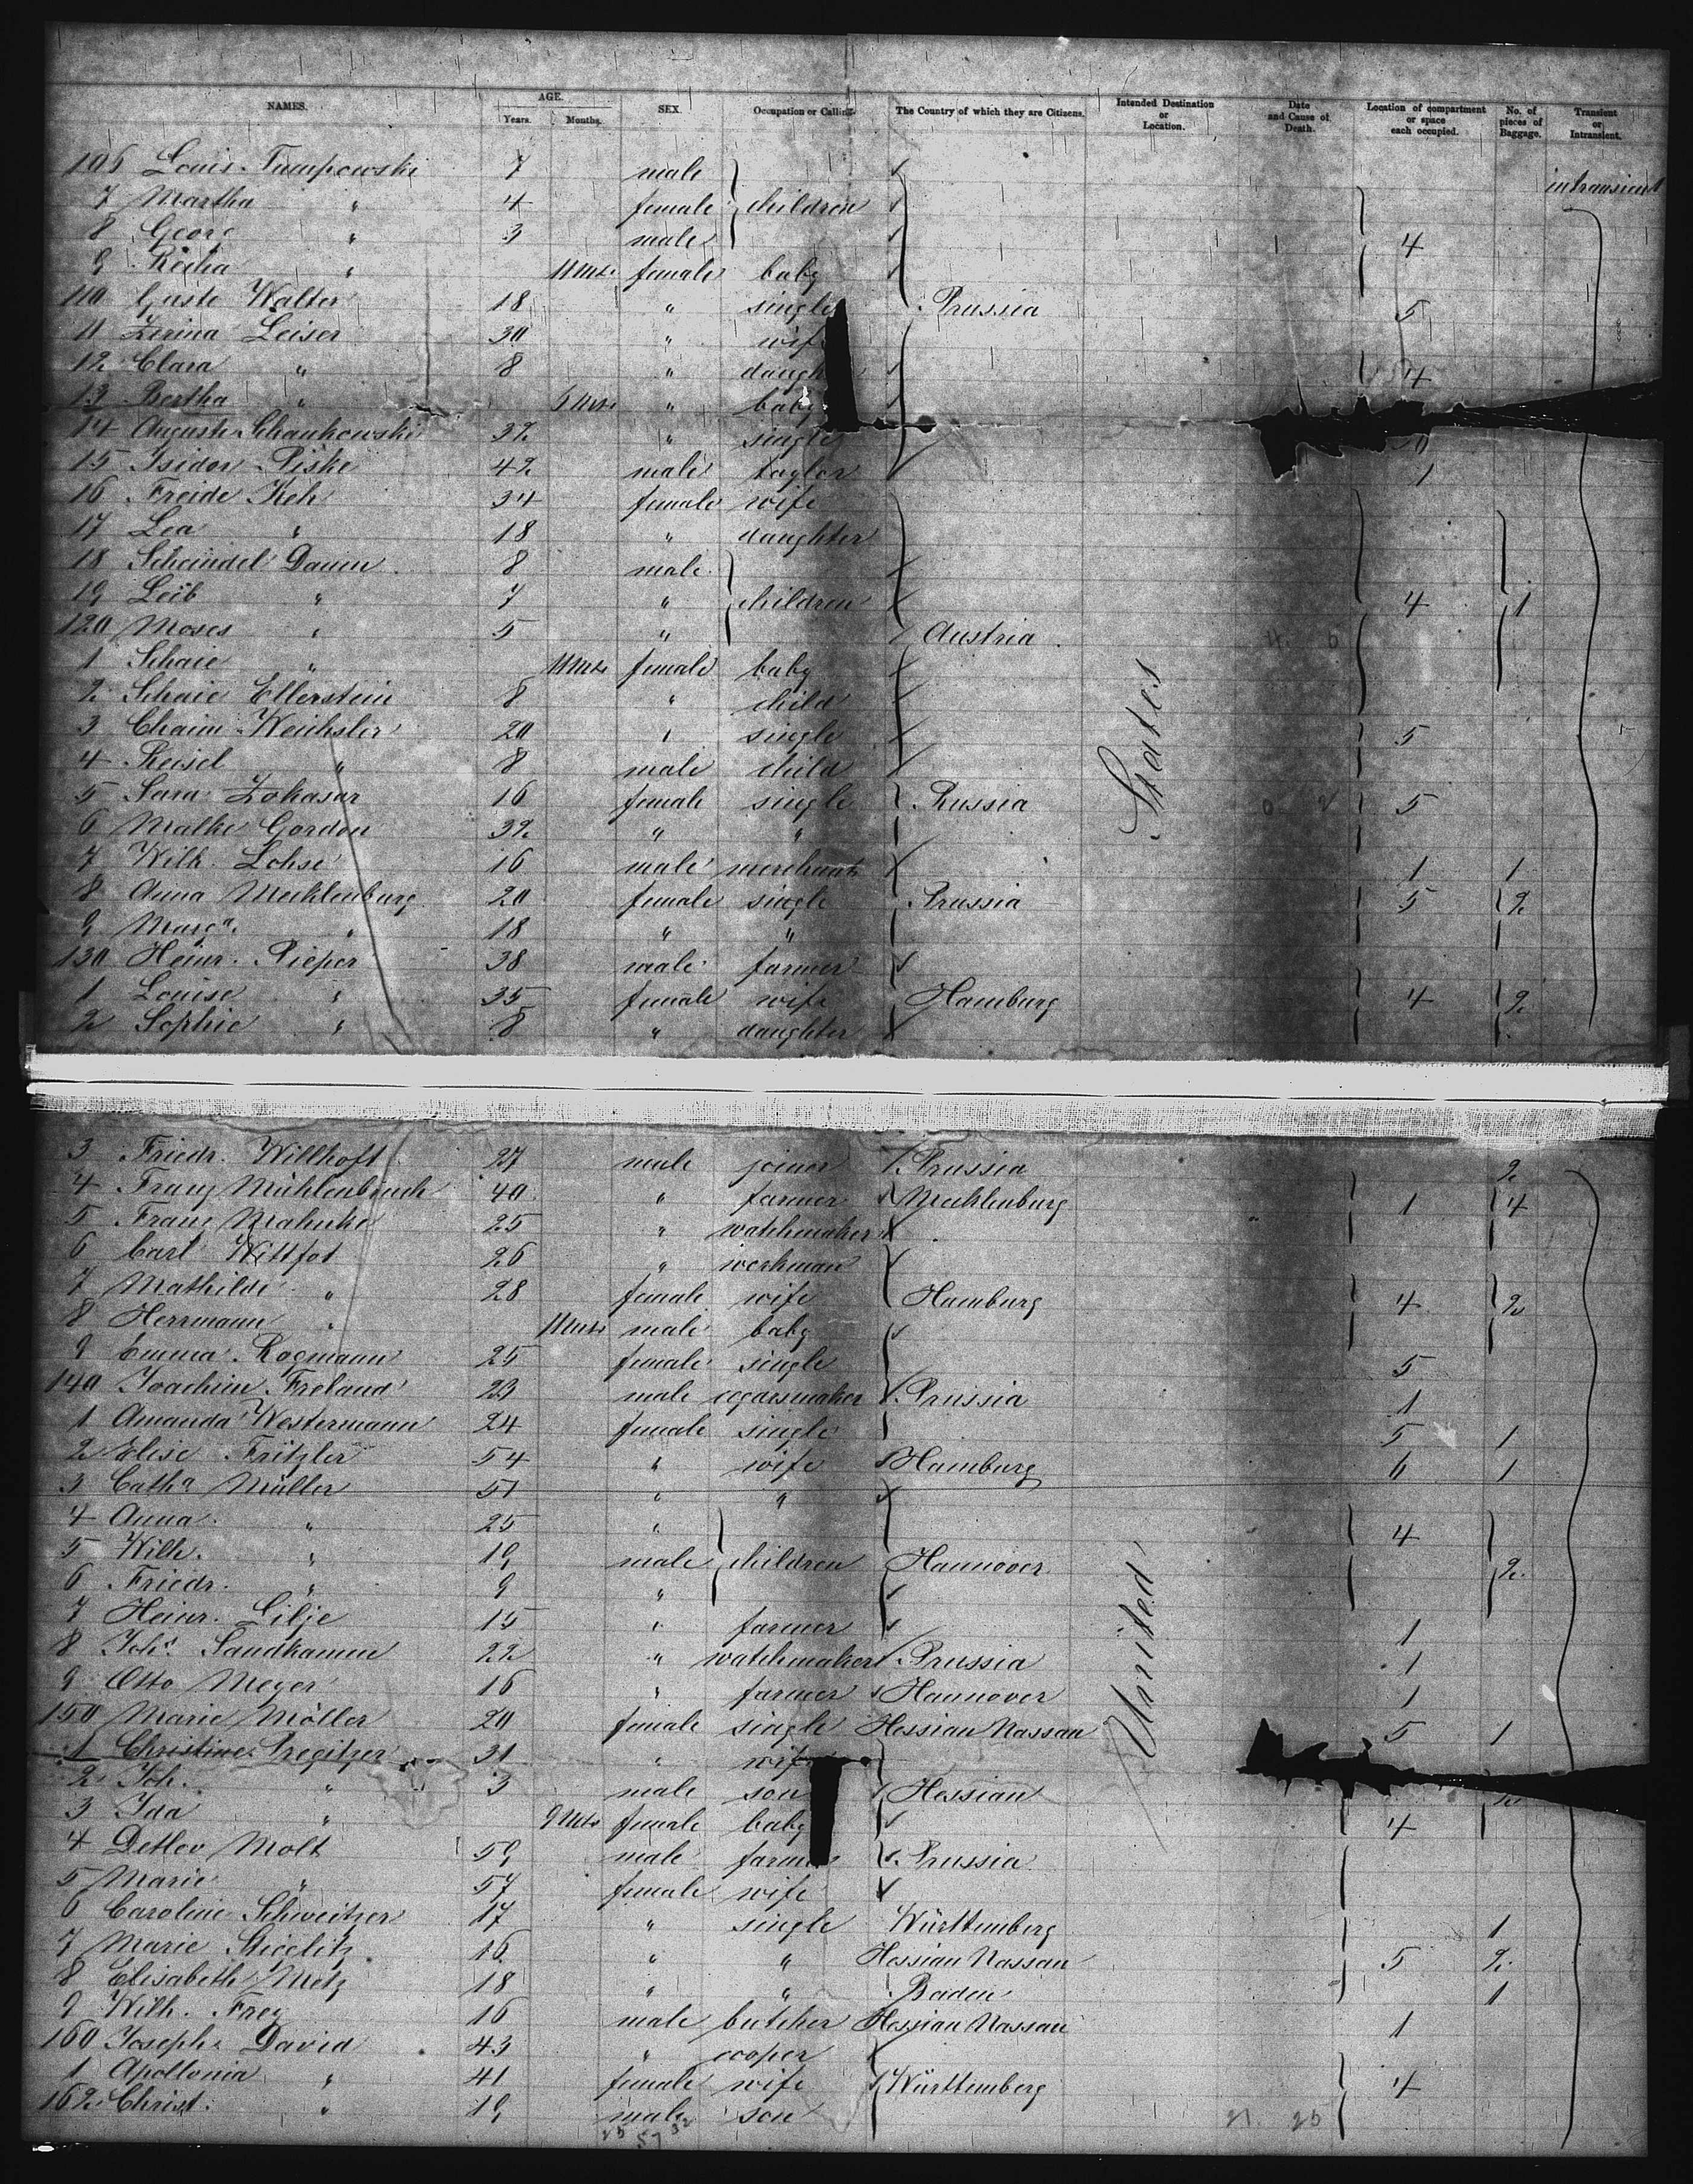 NAMES. AGE. Years. Months. SEX. Occupation or Calling. The Country of which they are Citizens. Intended Destination or Location. Date and Cause of Death. Location of compartment or space each occupied. No. of pieces of Baggage. Transient or Intransient.
106 Louis Tumpowski 7 male intransient
7 Martha " 4 female children
8 Georg " 3 male 4
9 " 11 Mts. female baby
110 Guste Walter 18 " single Prussia 5
11 Zerina Leiser 30 " wife
12 Clara " 8 " daugh 4
13 Bertha " Mts " baby
14 Auguste 32 " single
15 Isidor Piske 42 male taylor 1
16 Freide Keh 34 female wife
17 Lea " 18 " daughter
18 Scheindel Daum 8 male
19 Leib " 7 " children 4 1
120 Moses " 5 " Austria
1 Schaie " 11 Mts female baby
2 Schaie Ellerstein 8 " child
3 Chaim Weichsler 20 " single 5
4 Reisel " 8 male child
5 Sara Zokasar 16 female single Russia 5
6 Malke Gordon 32 " "
7 Wilh. Lohse 16 male merchant 1 1
8 Anna Mecklenburg 20 female single Prussia 5 2
9 Marg.a " 18 " "
130 Heinr. Pieper 38 male farmer
1 Louise " 35 female wife Hamburg 4 2
2 Sophie " 8 " daughter
States
3 Friedr. Willhoft 27 male joiner Prussia 2
4 Franz Mühlenbruch 40 " farmer Mecklenburg 1 4
5 Franz Mahnke 25 " watchmaker
6 Carl Wittfot 26 " workman
7 Mathilde " 28 female wife Hamburg 4 2
8 Herrmann " 11 Mts male baby
9 Emma Rogmann 25 female single 5
140 Joachim Freland 23 male cigarsmaker Prussia 1
1 Amanda Westermann 24 female single 5 1
2 Elise Fritzler 54 " wife Hamburg 6 1
3 Cath.a Müller 51 " "
4 Anna " 25 " 4
5 Wilh. " 19 male children Hannover 2
6 Friedr. " 9 "
7 Heinr. Lilje 15 " farmer 1
8 Joh.s Sandkamm 22 " watchmaker Prussia 1
9 Otto Meyer 16 " farmer Hannover 1
150 Marie Möller 20 female single Hessian Nassau 5 1
1 Christine Pregitzer 31 " wife
2 Joh. " 3 male son Hessian
3 Ida " 9 Mts female baby 4
4 Detlev Molt 59 male farmer Prussia
5 Marie " 57 female wife
6 Caroline Schweitzer 17 " single Württemberg 1
7 Marie Stieglitz 16 " " Hessian Nassau 5 2
8 Elisabeth Metz 18 " " Baden 1
9 Wilh. Frey 16 male butcher Hessian Nassau 1
160 Joseph David 43 " cooper
1 Apollonia " 41 female wife Württemberg 4
162 Christ. " 19 male son
United